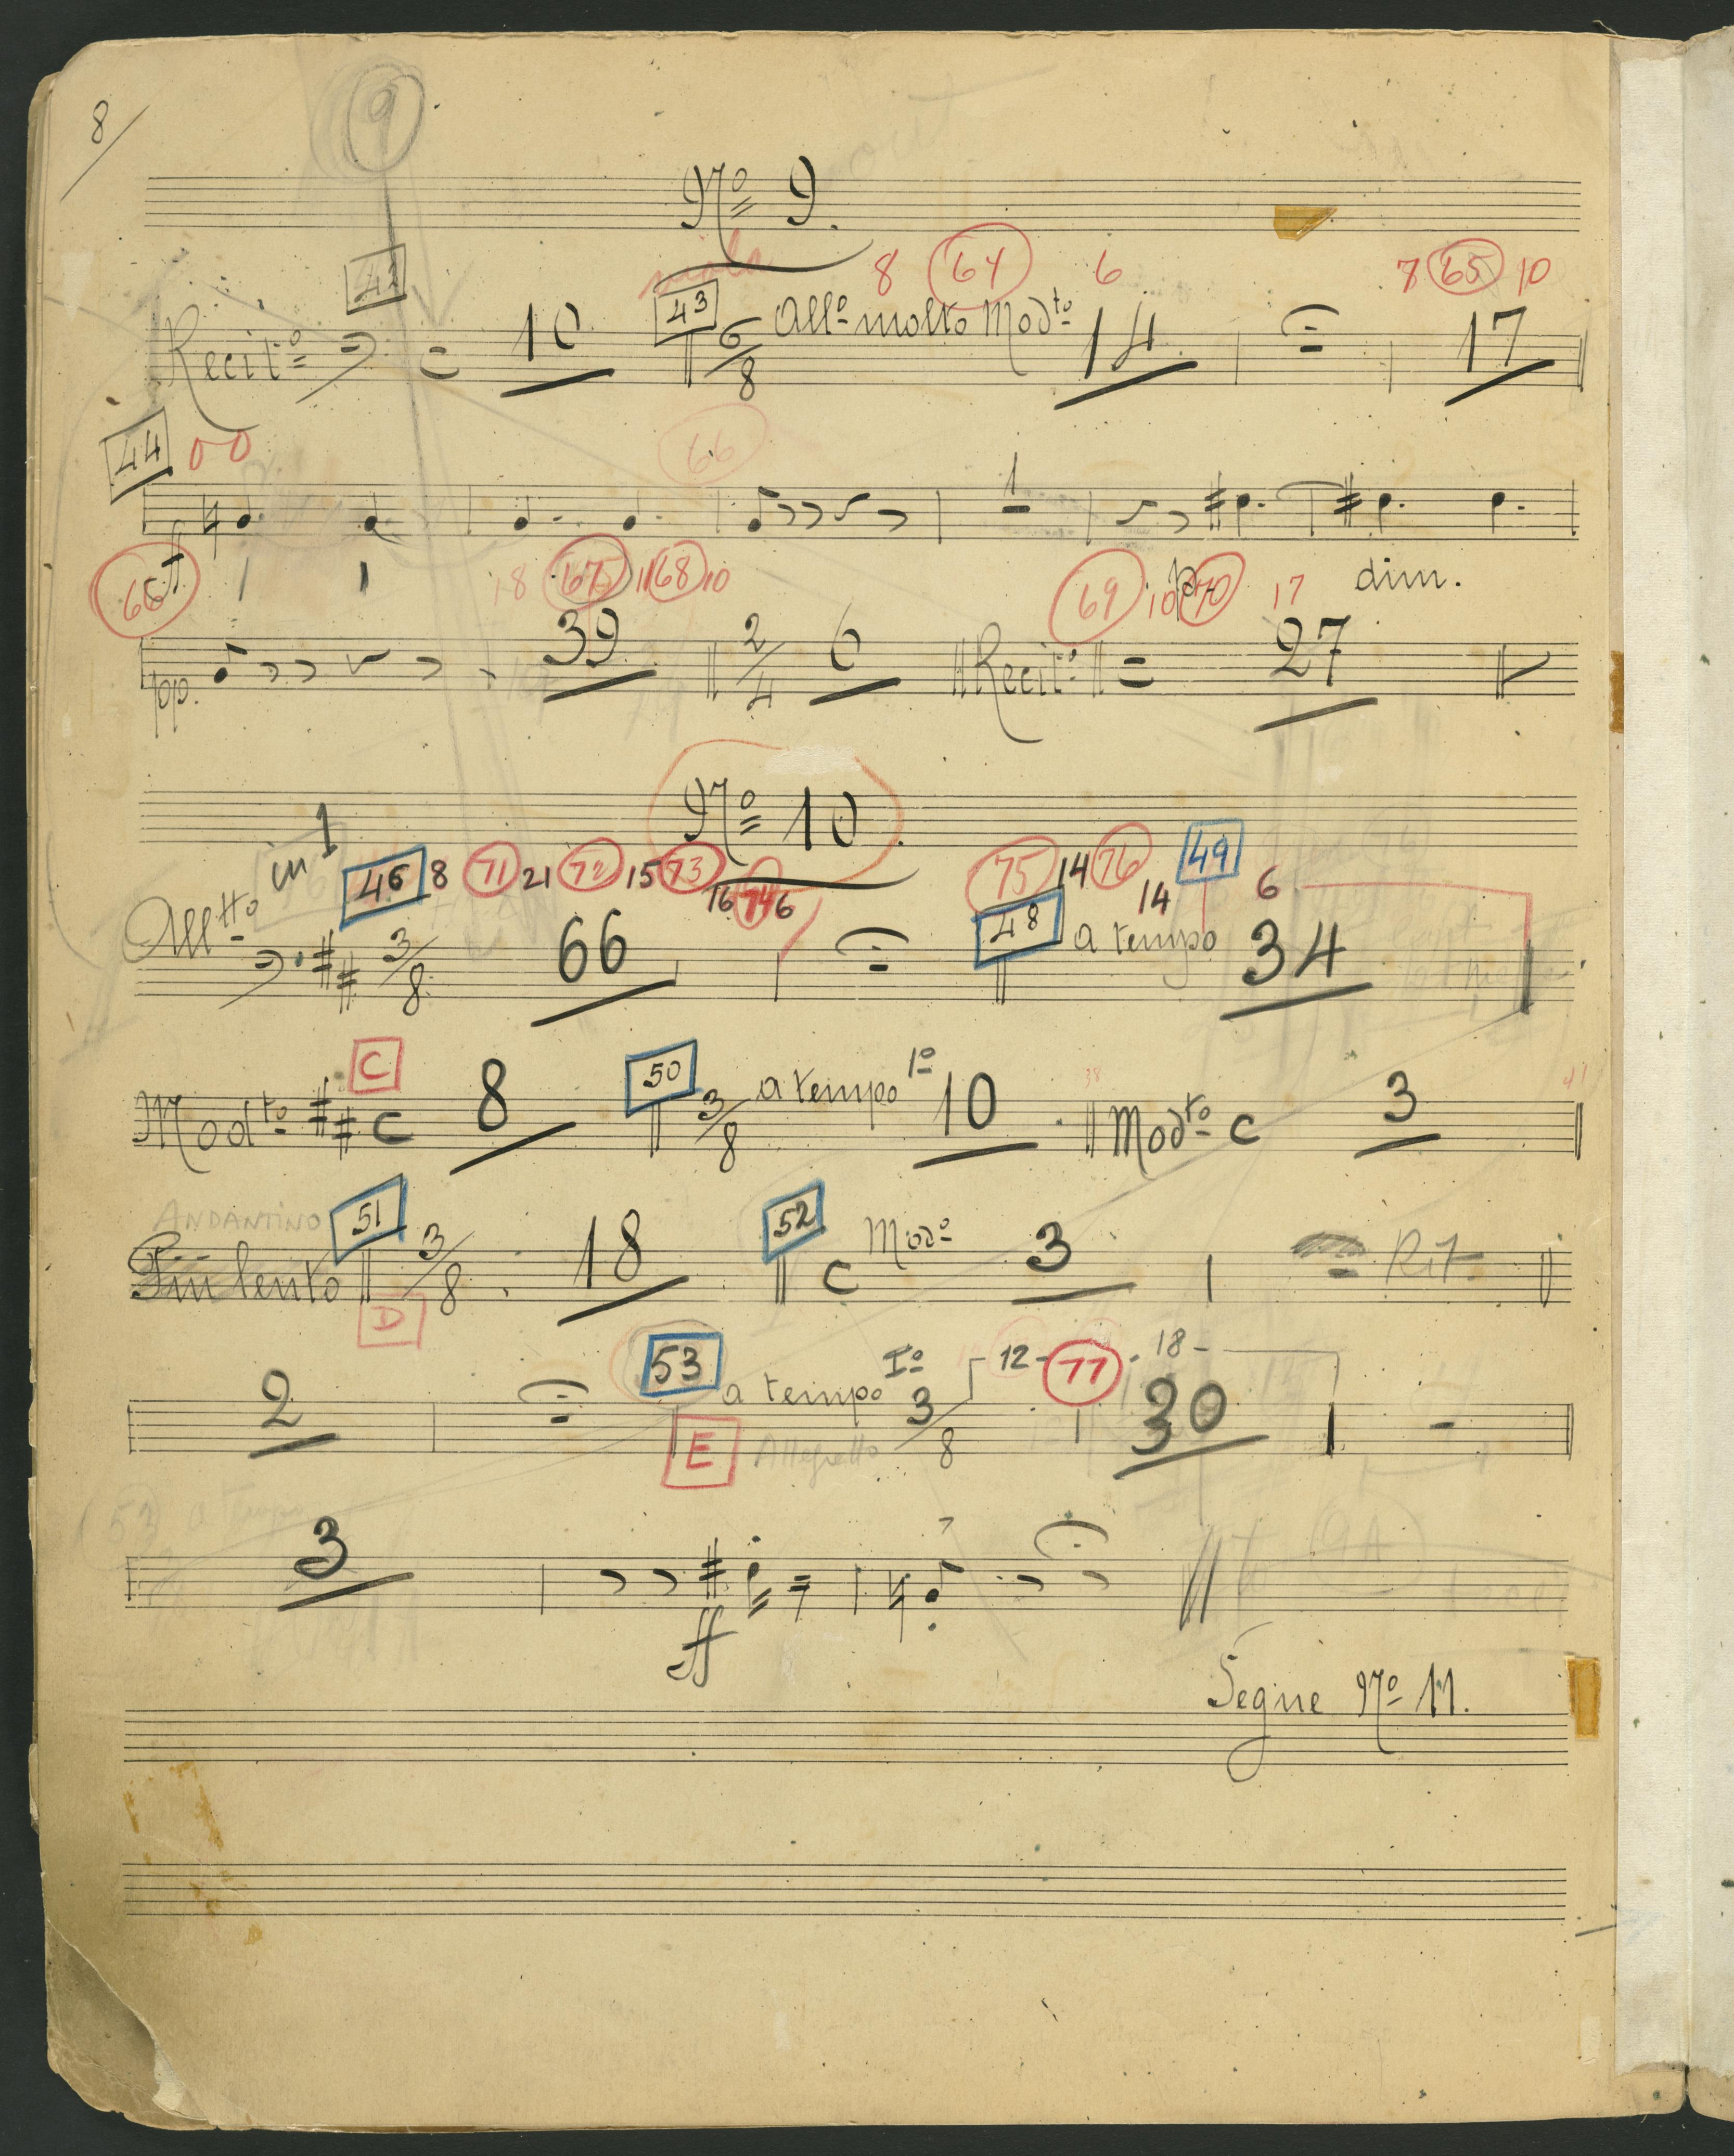 8
9
Nº 9.
8 64 6 7 65 10
Recitº 10 43 6/8 Allº molto Modto 14 17
44
66
ff 1 p dim.
66 1 1 18 67 11 68 10 69 10 70 17
pp. 39 2/4 6 Recitº 27
Nº 10.
in 1 46 8 71 21 72 15 73 16 74 6 75 14 76 14 49 6
Alltto 3/8 66 48 a tempo 34
C
Modto C 8 50 3/8 a tempo 1º 10 Modto C 3
ANDANTINO 51 52
Piu lento 3/8 18 C Modº 3 Rit.
D
53 12 - 77 - 18 -
2 a tempo Iº 3/8 30
E Allegretto
53 a tempo
3
ff
Segue Nº 11.